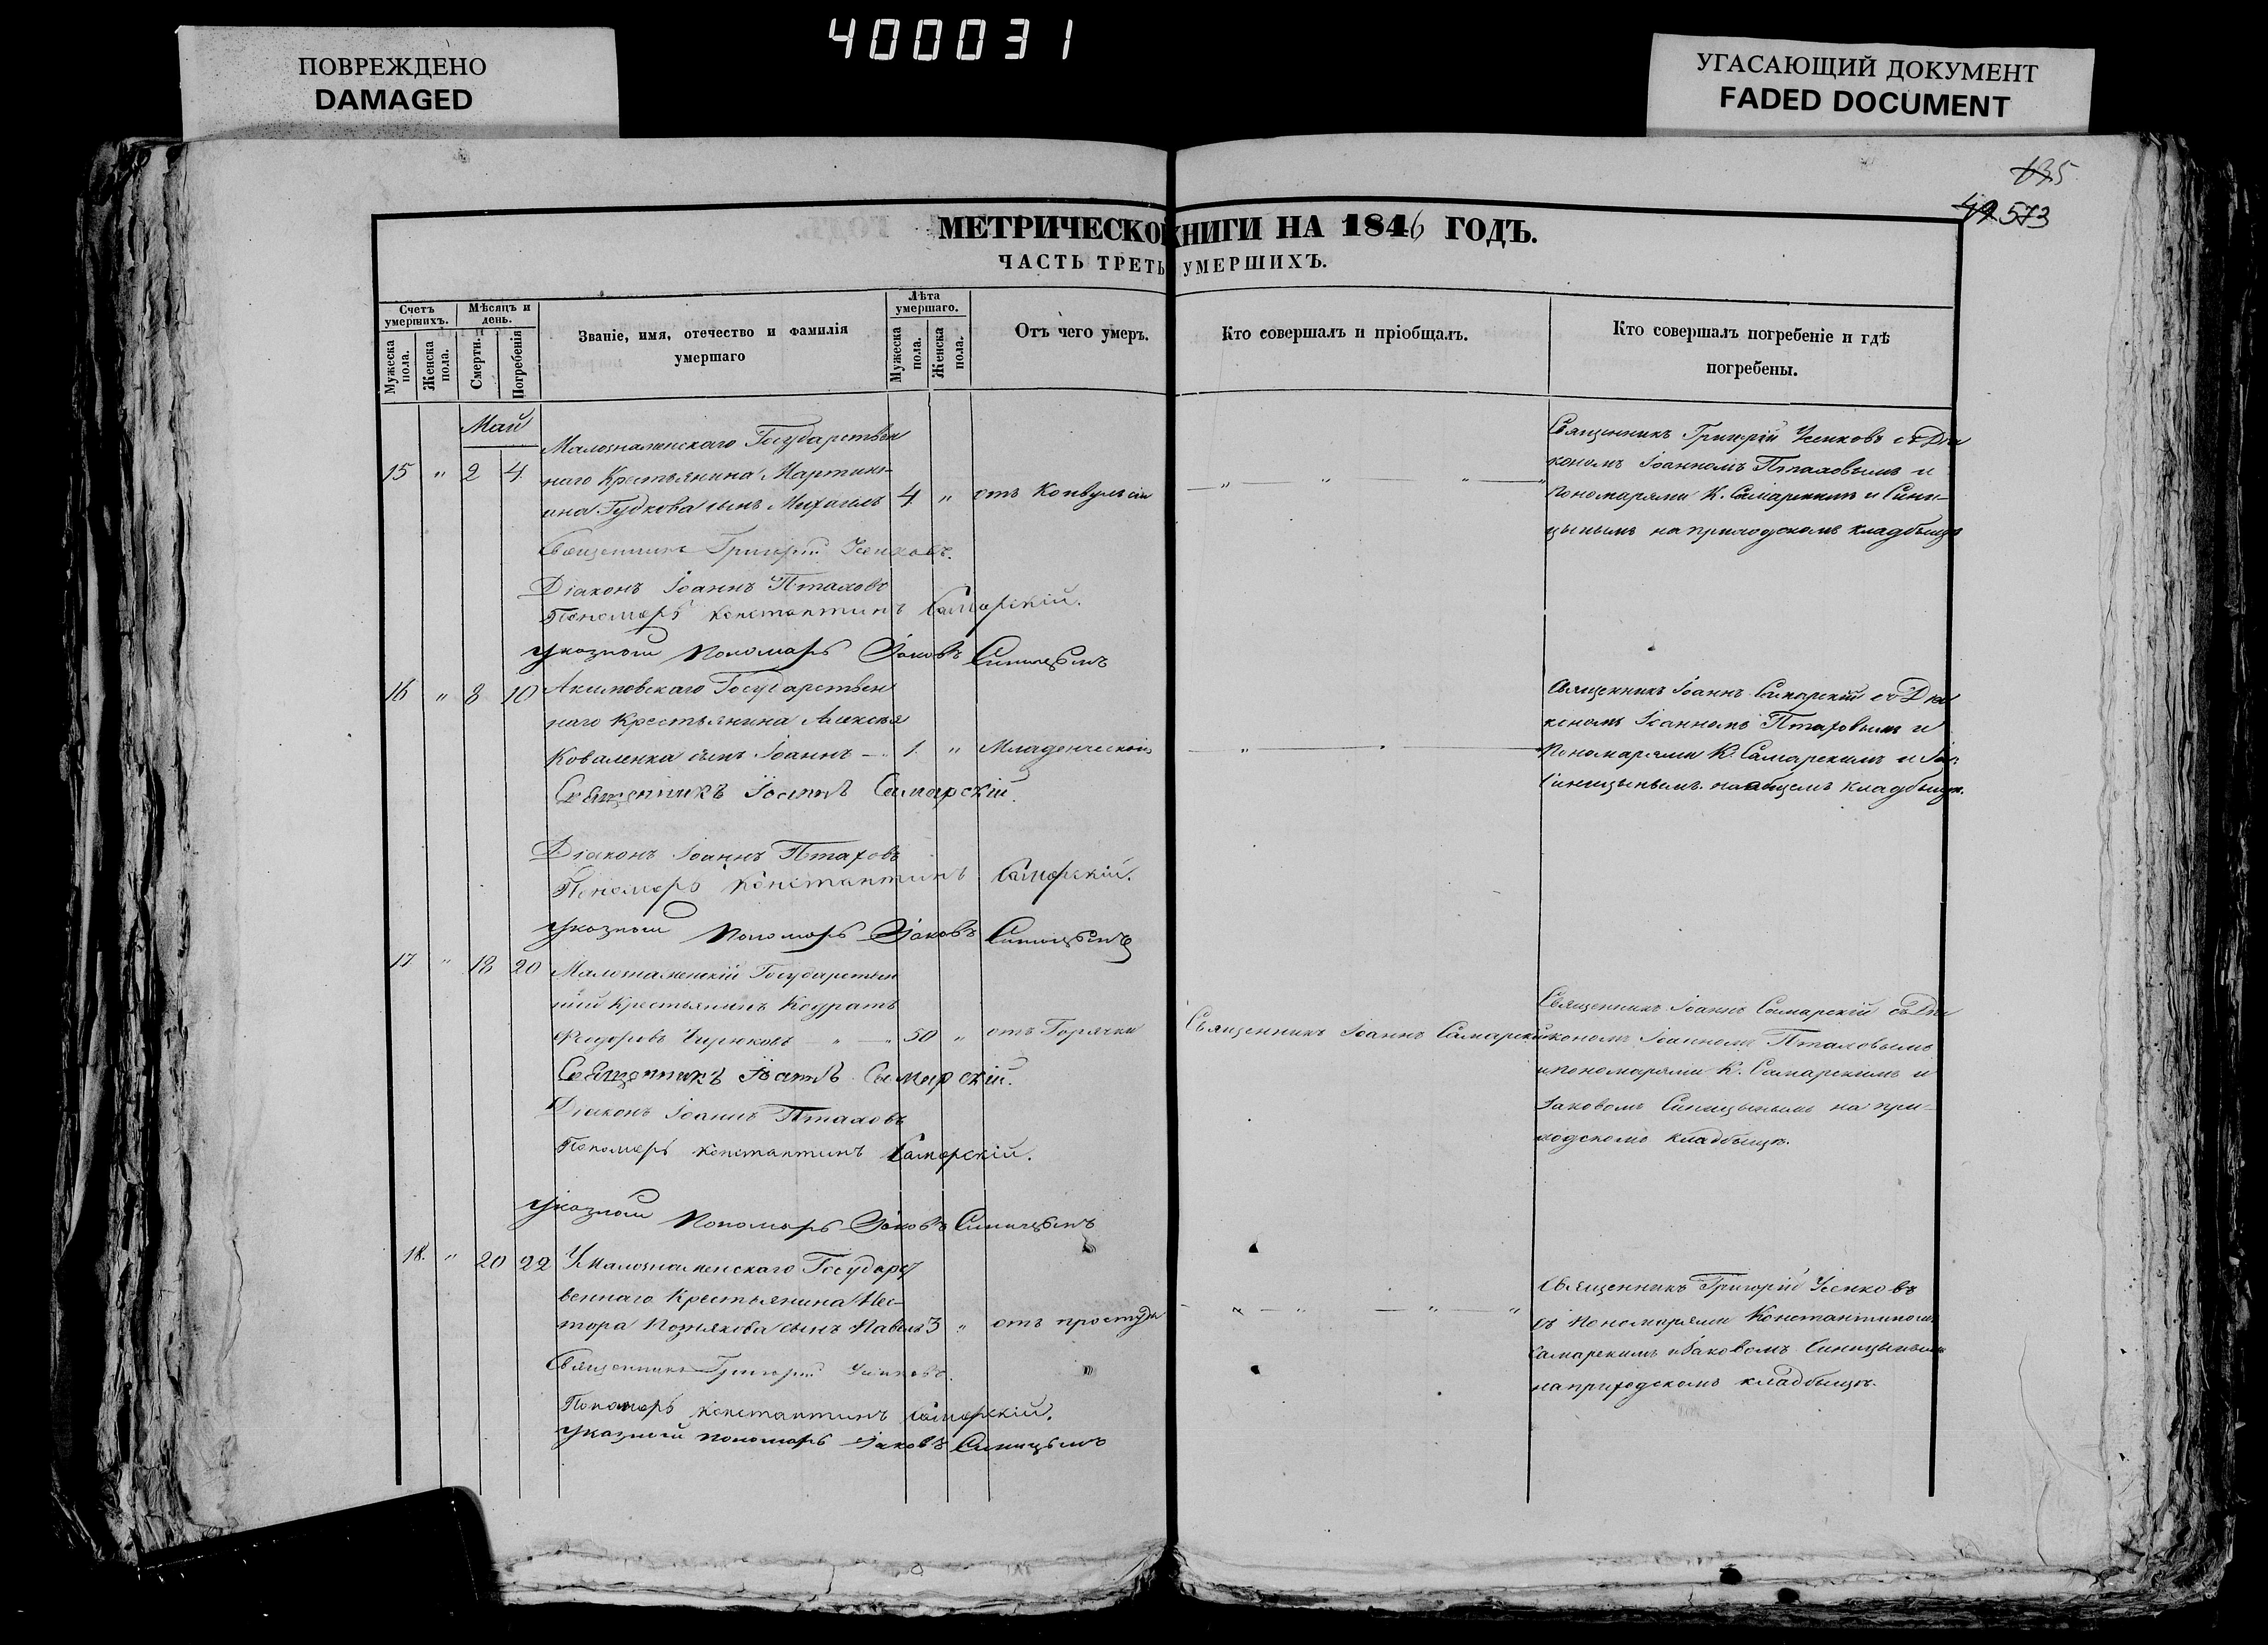 400031
ПОВРЕЖДЕНО
DAMAGED
УГАСАЮЩИЙ ДОКУМЕНТ
FADED DOCUMENT
135
49 573
МЕТРИЧЕСКОЙ КНИГИ НА 1846 ГОДЪ.
ЧАСТЬ ТРЕТЬ УМЕРШИХЪ.
Счетъ умершихъ.
Мужеска пола.
Женска пола.
Мѣсяцъ и день.
Смерти.
Погребенія
Званіе, имя, отечество и фамилія
умершаго
Лѣта умершаго.
Мужеска пола.
Женска пола.
Отъ чего умеръ.
Кто совершалъ и пріобщалъ.
Кто совершалъ погребеніе и гдѣ
погребены.
Май
Малознаменскаго Государствен
15 " 2 4 наго Крестьянина Мартини-
ана Гудкова сынъ Михаилъ 4 " отъ Конвульсіи
Священникъ Григорій Усенковъ
Діакономъ Іоанномъ Птаховымъ и
Пономарями К. Самарскимъ и Сини-
цынымъ на приходскомъ кладбищѣ
Священникъ Григорій Усенковъ.
Діаконъ Іоаннъ Птаховъ
Пономарь Константинъ Самарскій.
Указной Пономарь Іаковъ Синицынъ
16 " 8 10 Акимовскаго Государствен
наго Крестьянина Алексѣя
Коваленка сынъ Іоаннъ 1. " Младенческой
Священникъ Іоаннъ Самарскій съ Діа
кономъ Іоанномъ Птаховымъ и
Пономарями К. Самарскимъ и
Синицынымъ на общемъ кладбищѣ.
Священникъ Іоаннъ Самарскій.
Діаконъ Іоаннъ Птаховъ
Пономарь Константинъ Самарскій.
Указной Пономарь Іаковъ Синицынъ
17 " 18 20 Малознаменскій Государствен
ный Крестьянинъ Кодратъ
Федоровъ Бирюковъ 50 " отъ Горячки
Священникъ Іоаннъ Самарскій
Священникъ Іоаннъ Самарскій съ Діа
кономъ Іоанномъ Птаховымъ
и пономарями К. Самарскимъ и
Іаковомъ Синицынымъ на при-
ходскомъ кладбищѣ.
Священникъ Іоаннъ Самарскій.
Діаконъ Іоаннъ Птаховъ
Пономарь Константинъ Самарскій.
Указной Пономарь Іаковъ Синицынъ
18. " 20 22 У Малознаменскаго Государст
веннаго Крестьянина Нес-
тора Познякова сынъ Павелъ 3 " отъ простуды
Священникъ Григорій Усенковъ
съ Пономарями Константиномъ
Самарскимъ и Іаковомъ Синицынымъ
на приходскомъ кладбищѣ.
Священникъ Григорій Усенковъ.
Пономарь Константинъ Самарскій.
Указной пономарь Іаковъ Синицынъ